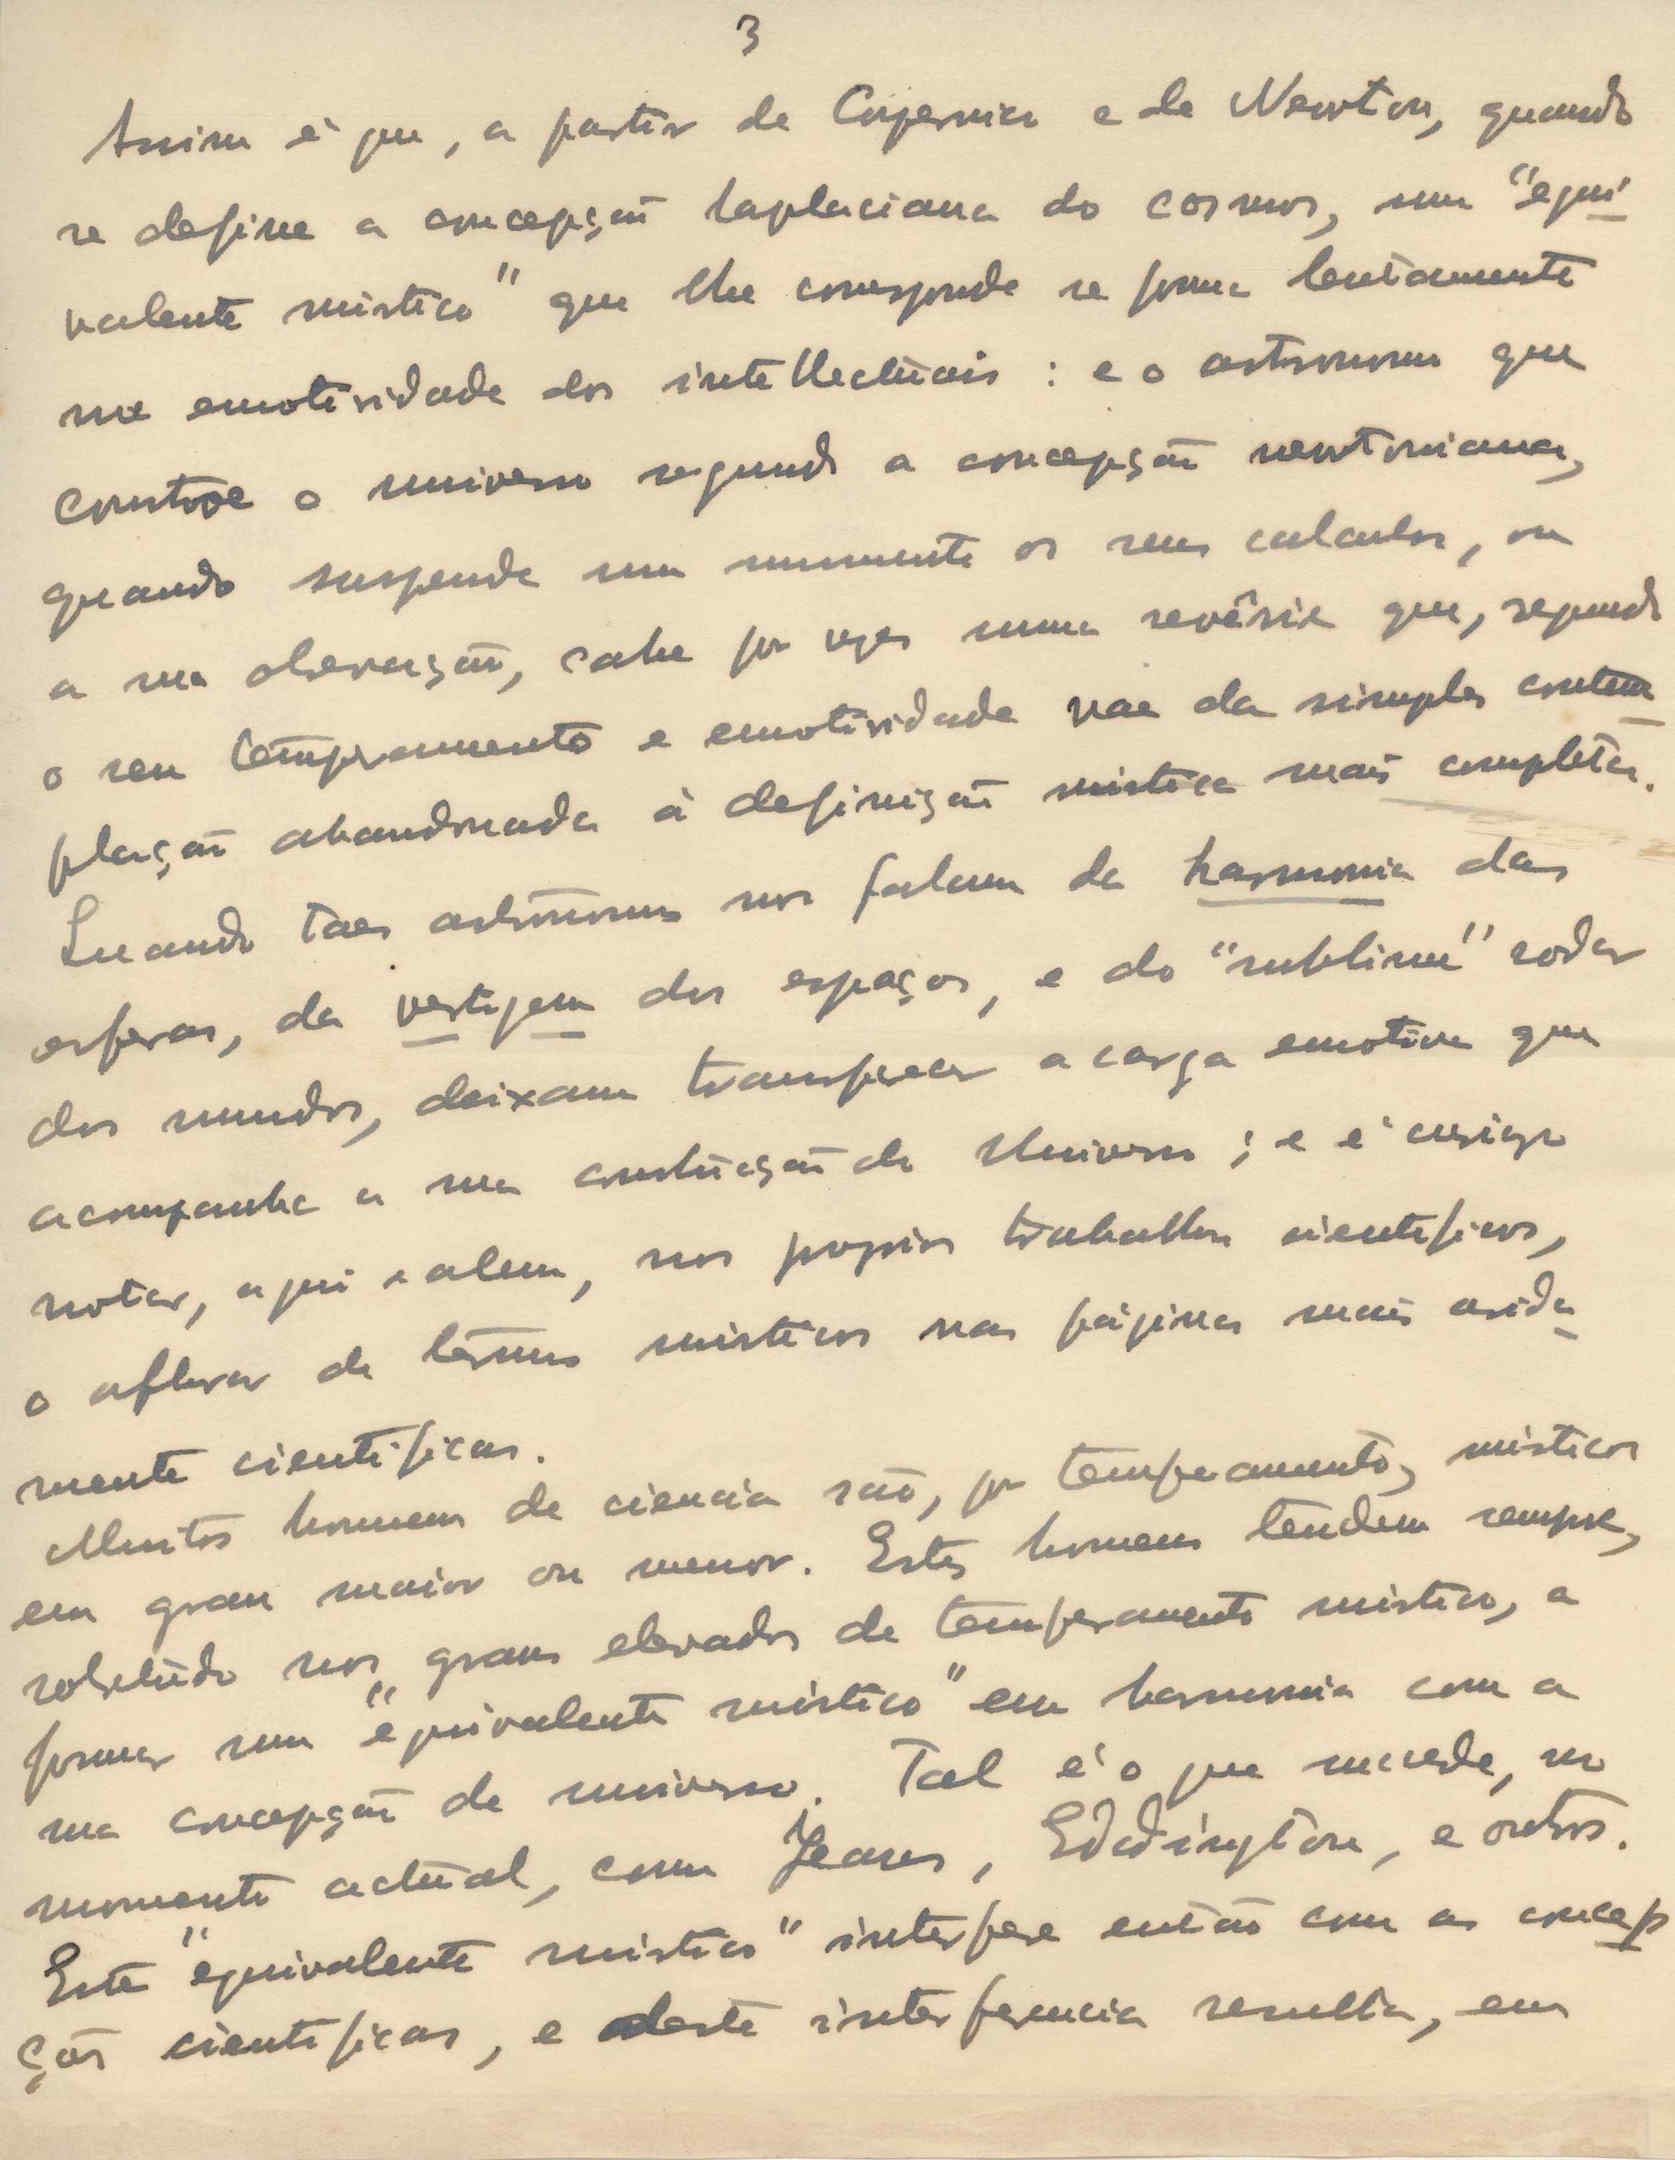 3
Assim é que, a partir de Copernico e de Newton, quando
se define a concepção laplaciana do cosmos, um "equi
valente mistico" que lhe corresponde se forma lentamente
na emotividade dos intellectuais : e o astronomo que
constroe o universo segundo a concepção newtoniana,
quando suspende um momento os seus calculos, ou
a sua observação, cahe por vezes numa revêrie que, segundo
o seu temperamento e emotividade vae da simples contem
plação abandonada à definição mistica mais completa.
Quando taes astrónomos nos falam da harmonia das
esferas, da vertigem dos espaços, e do "sublime" rodar
dos mundos, deixam transparecer a carga emotiva que
acompanha a sua construção do Universo ; e é curioso
notar, aqui e alem, nos proprios trabalhos scientificos,
o aflorar de termos misticos nas páginas mais arida
mente cientificas.
Muitos homens de ciencia são, por temperamento, misticos
em grau maior ou menor. Estes homens tendem sempre,
sobretudo nos graus elevados de temperamento mistico, a
formar um "equivalente mistico" em harmonia com a
sua concepção de universo. Tal é o que sucede, no
momento actual, com Jeans, Eddington, e outros.
Este "equivalente mistico" interfere então com as concep
ções cientificas, e desta interferencia resulta, em